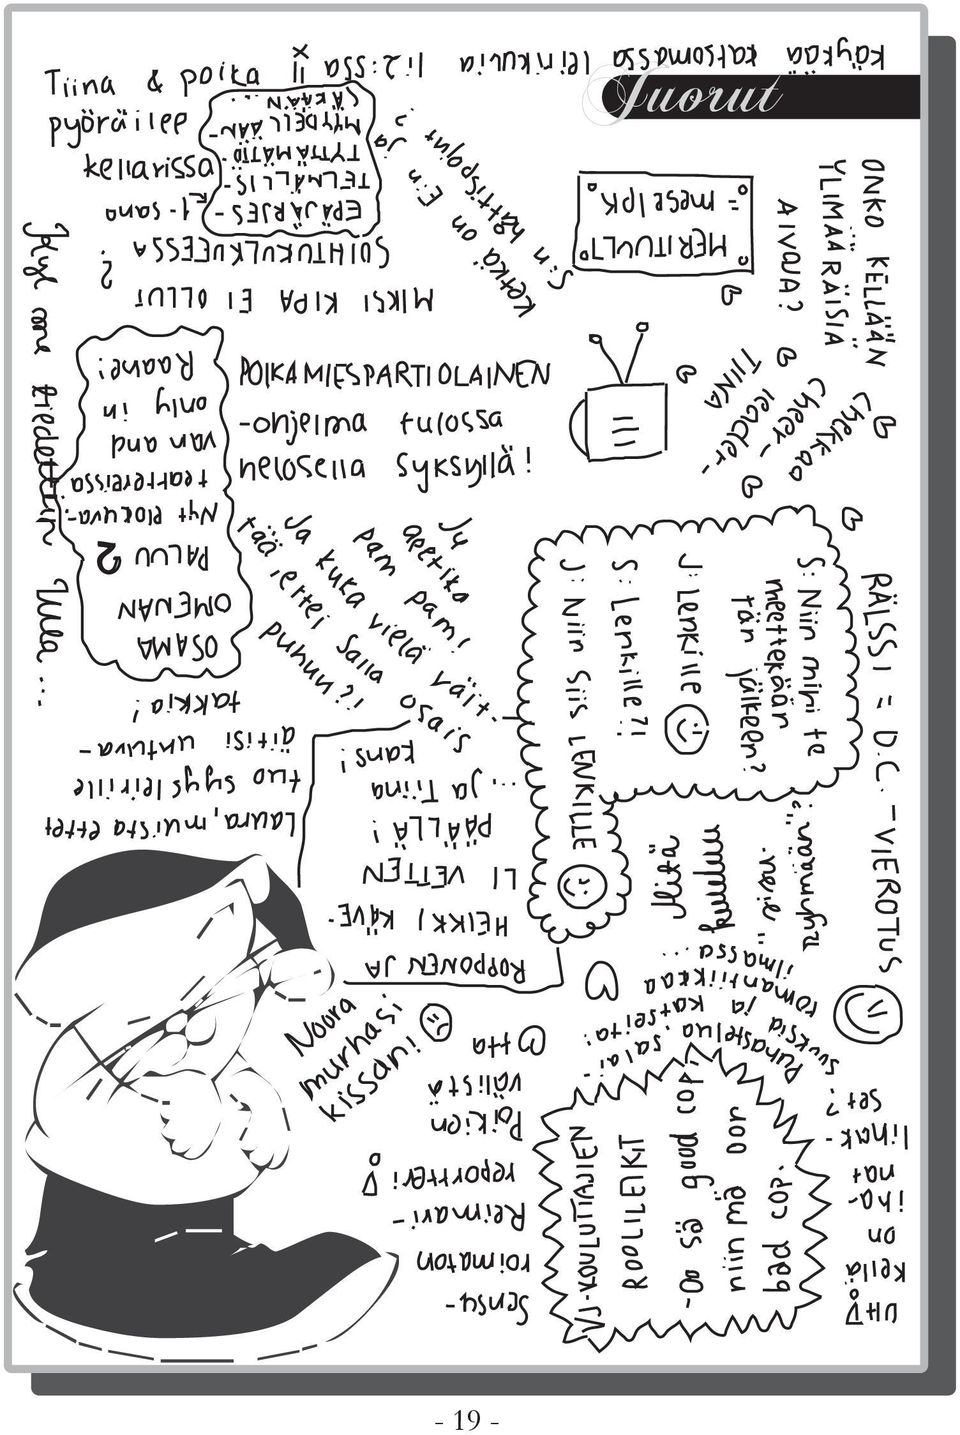 Juorut
Käykää katsomassa leirikuvia 1:12:ssa
Tiina & poika x 11
pyöräilee
kellarissa
EPÄJÄRJES-
TELMÄLLIS-
TYTTÄMÄTTÖ-
MYYDELLÄÄN-
SÄKÄÄN...
- sana
MIKSI KIPA EI OLLUT
SOIHTUKULKUEESSA
?
Ketkä on
S:n hättispojut?
Ein ja
MERITUULI
= mese IPK
ONKO KELLÄÄN
YLIMÄÄRÄISIÄ
AIVOJA?
Chekkaa
cheer-
leader-
TIINA
Kyl me tiedettiin Mea...
OSAMA
OMENAN
PALUU 2
Nyt elokuva-
teattereissa
van and
only in
Raahe!
POIKAMIESPARTIOLAINEN
-ohjelma tulossa
nelosella syksyllä!
JU
apetiko
pam pam!
Ja kuka vielä väit-
tää, ettei Salla osais
puhuu?!
S: Niin mini te
meettekään
tän jälkeen?
J: Lenkille
S: Lenkille?!
J: Niin siis LENKILLE
RÄLSSI = D.C. - VIEROTUS
Laura, muista ettet
tuo syysleirille
äitisi untuva-
takkia!
ROPPONEN JA
HEIKKI KÄVE-
LI VETTEN
PÄÄLLÄ!
... ja Tiina
kans!
Mitä
kuuluu
ryhmään:
"..neie"
Noora
murhasi
kissan!
Puhastelua, salai-
suuksia ja katseita:
romantiikkaa
ilmassa...
Sensu-
roimaton
Reimari-
reportteri
Poikien
välistä
otta
VJ-KOULUTTAJIEN
ROOLILEIKIT
-Oo sä good cop,
niin mä oon
bad cop.
UH!
kellä
on
iha-
nat
lihak-
set?
- 19 -